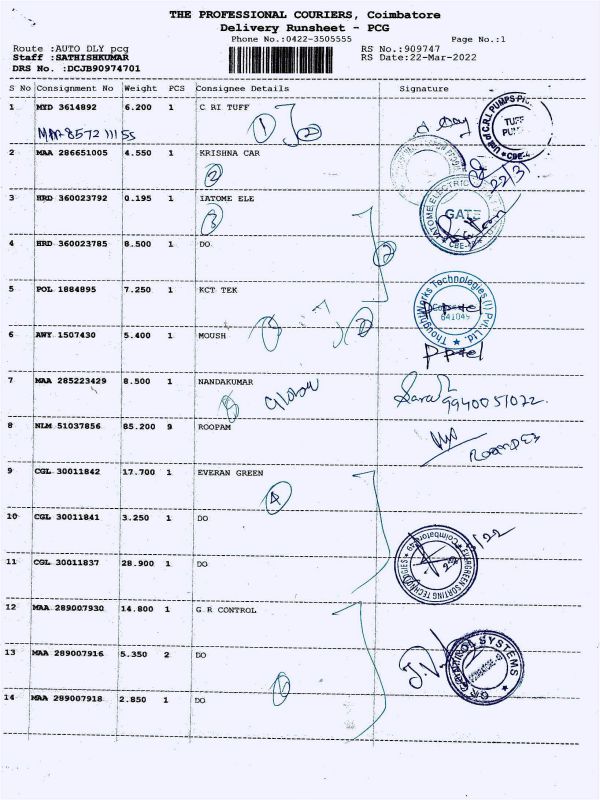 THE PROFESSIONAL COURIERS, Coimbatore
Delivery Runsheet - PCG
Phone No.:0422-3505555 Page No.:1
Route :AUTO DLY pcg RS No.:909747
Staff :SATHISHKUMAR RS Date:22-Mar-2022
DRS No. :DCJB90974701
S No Consignment No Weight PCS Consignee Details Signature
1 MYD 3614892 6.200 1 C RI TUFF
MAA 857211155
2 MAA 286651005 4.550 1 KRISHNA CAR
3 HRD 360023792 0.195 1 IATOME ELE
GATE
4 HRD 360023785 8.500 1 DO
5 POL 1884895 7.250 1 KCT TEK
ThoughtWorks Technologies (I) Pvt. Ltd.
641045
6 AWY 1507430 5.400 1 MOUSH
7 MAA 285223429 8.500 1 NANDAKUMAR
9940051022
8 NLM 51037856 85.200 9 ROOPAM
9 CGL 30011842 17.700 1 EVERAN GREEN
4
10 CGL 30011841 3.250 1 DO
11 CGL 30011837 28.900 1 DO
EVERGREEN SORTING TECHNOLOGIES
12 MAA 289007930 14.800 1 G R CONTROL
13 MAA 289007916 5.350 2 DO
J.V
14 MAA 289007918 2.850 1 DO